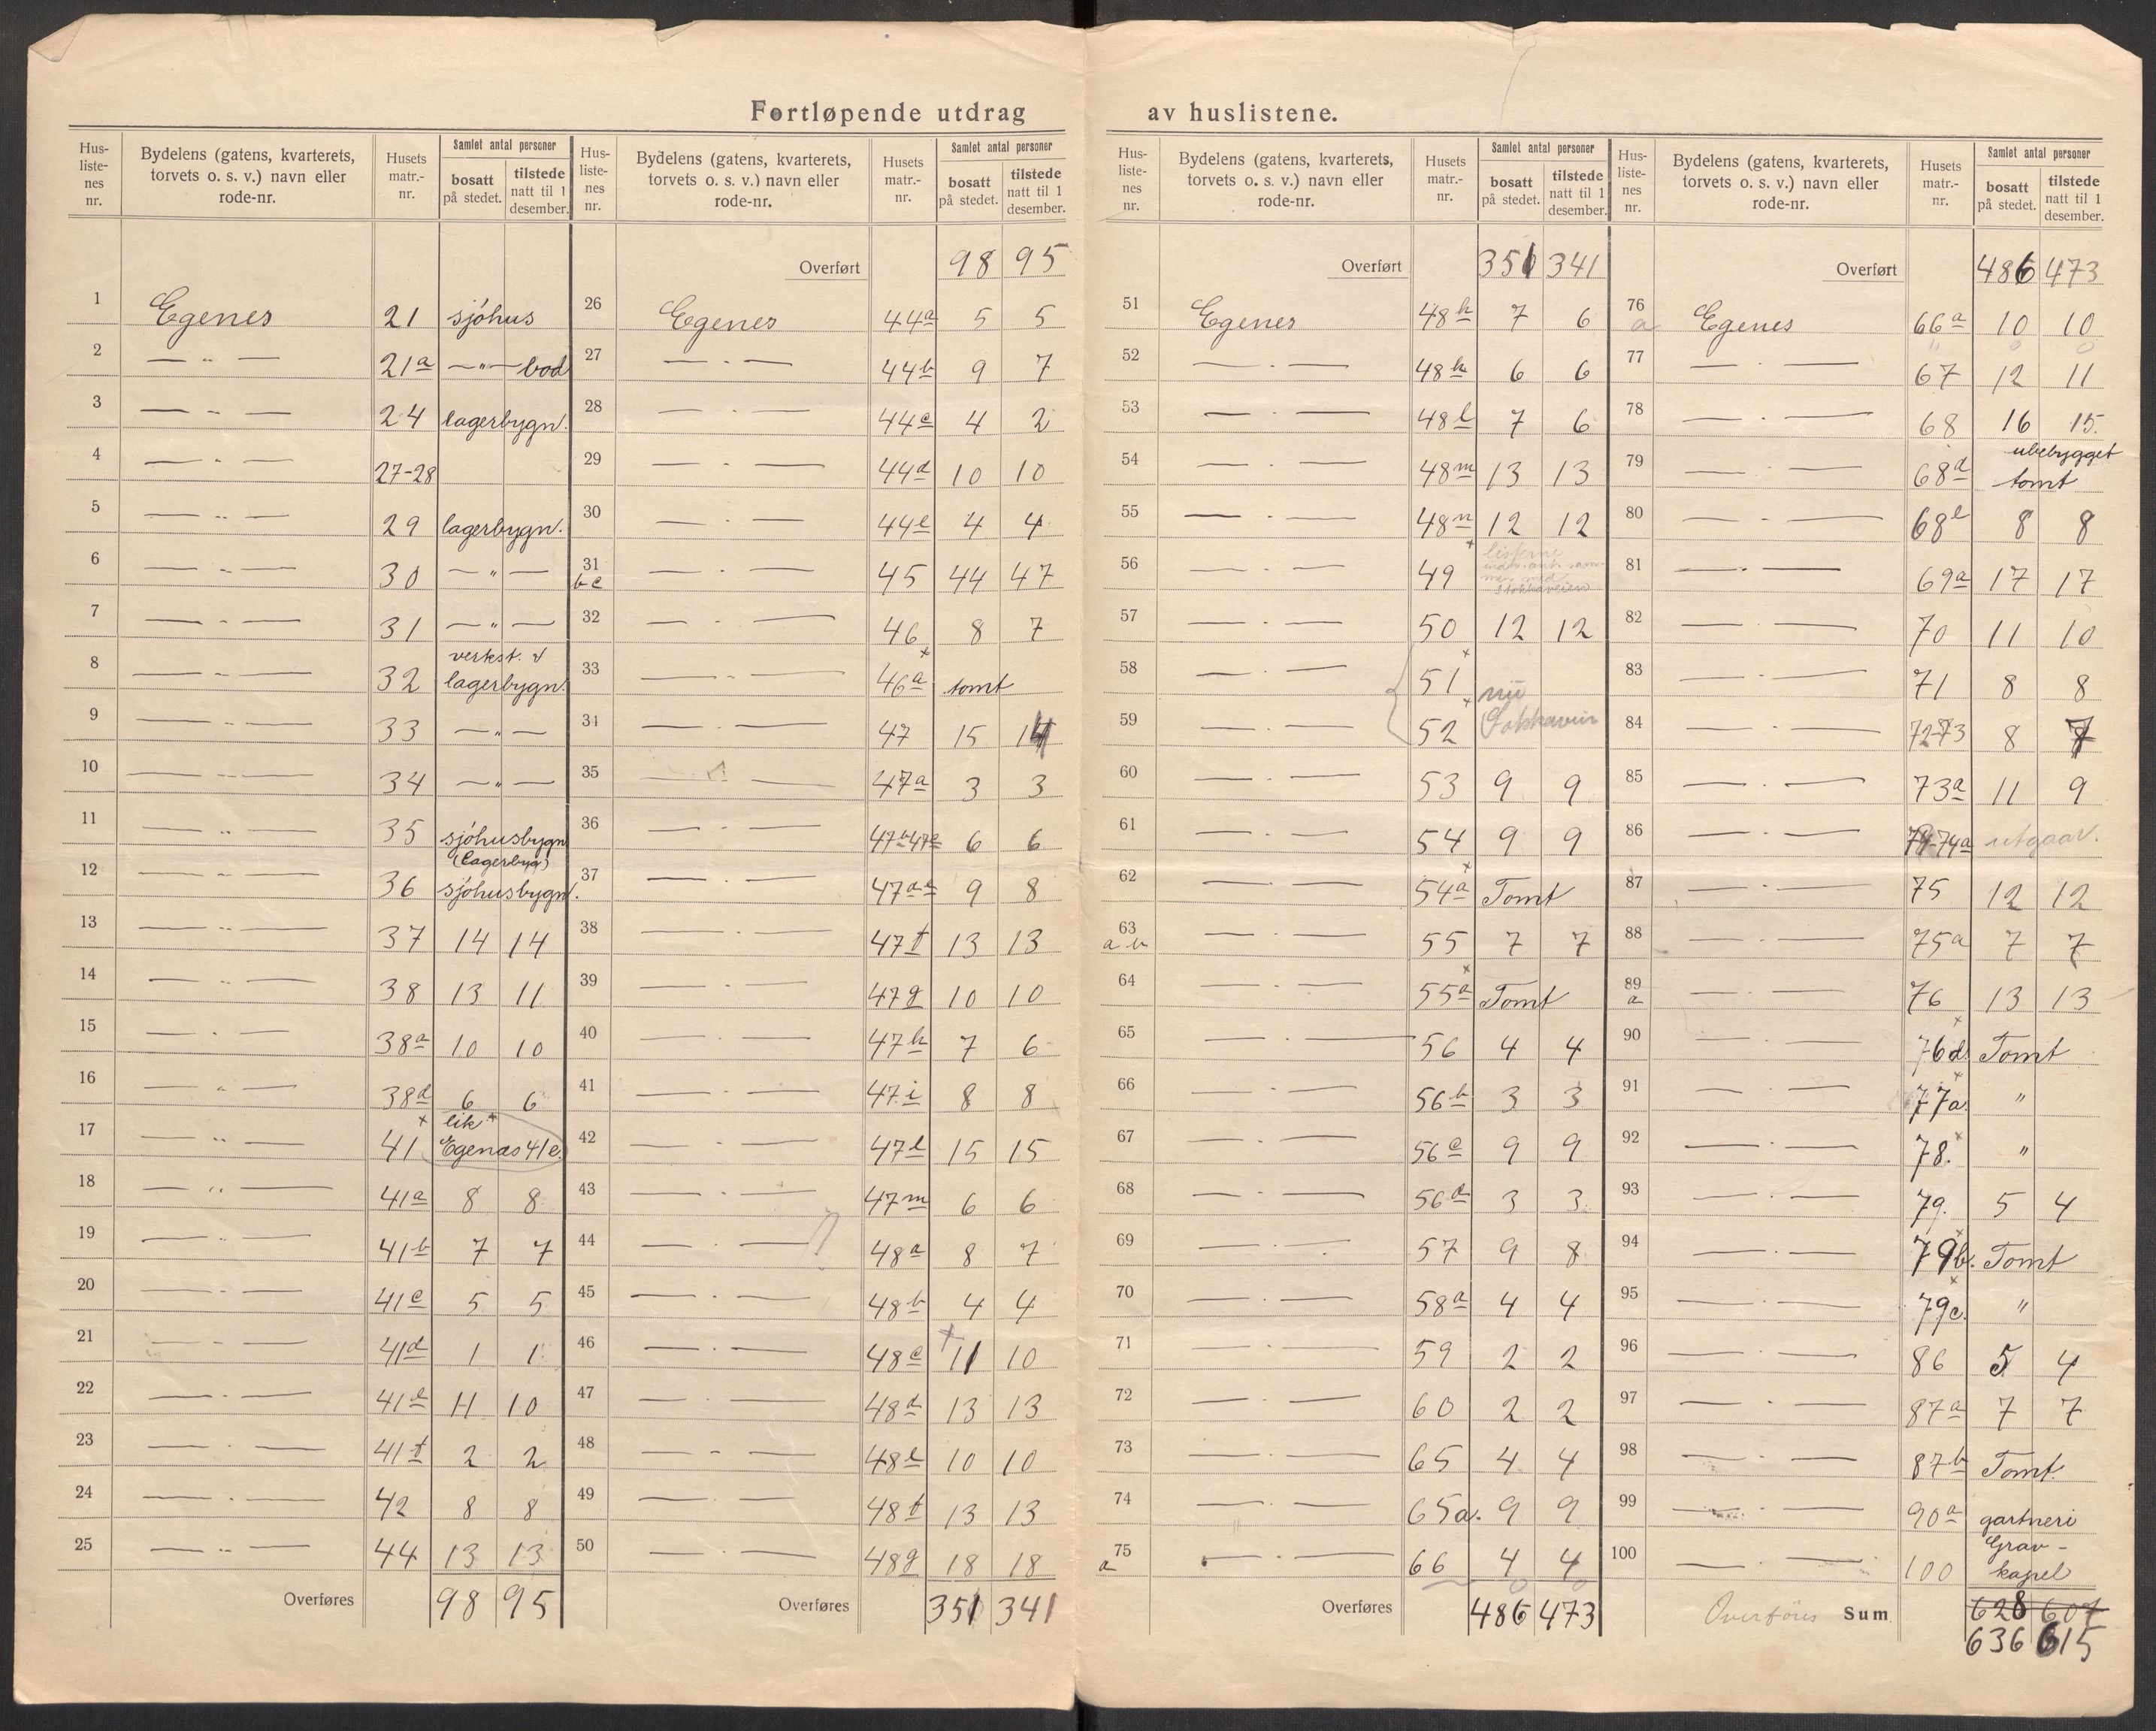 Fortløpende utdrag av huslistene.
Hus-liste-nes nr. | Bydelens (gatens, kvarterets, torvets o. s. v.) navn eller rode-nr. | Husets matr.-nr. | Samlet antal personer | bosatt på stedet. | tilstede natt til 1 desember.
1 Egenes 21 sjóhus
2 — " — 21a — " — bod
3 — " — 24 lagerbygn.
4 — " — 27-28
5 — " — 29 lagerbygn.
6 — " — 30 — " —
7 — " — 31 — " —
8 — " — 32 verkst. & lagerbygn.
9 — " — 33 — " —
10 — " — 34 — " —
11 — " — 35 sjóhusbygn (Lagerbyg)
12 — " — 36 sjóhusbygn.
13 — " — 37 14 14
14 — " — 38 13 11
15 — " — 38a 10 10
16 — " — 38d 6 6
17 — " — 41 lik Egenæs 41e.
18 — " — 41a 8 8
19 — " — 41b 7 7
20 — " — 41c 5 5
21 — " — 41d 1 1
22 — " — 41e 11 10
23 — " — 41f 2 2
24 — " — 42 8 8
25 — " — 44 13 13
Overføres 98 95
Hus-liste-nes nr. | Bydelens (gatens, kvarterets, torvets o. s. v.) navn eller rode-nr. | Husets matr.-nr. | Samlet antal personer | bosatt på stedet. | tilstede natt til 1 desember.
Overført 98 95
26 Egenes 44a 5 5
27 — " — 44b 9 7
28 — " — 44c 4 2
29 — " — 44d 10 10
30 — " — 44e 4 4
31 b c — " — 45 44 47
32 — " — 46 8 7
33 — " — 46a tomt
34 — " — 47 15 14
35 — " — 47a 3 3
36 — " — 47b-47c 6 6
37 — " — 47d-e 9 8
38 — " — 47f 13 13
39 — " — 47g 10 10
40 — " — 47h 7 6
41 — " — 47i 8 8
42 — " — 47l 15 15
43 — " — 47m 6 6
44 — " — 48a 8 7
45 — " — 48b 4 4
46 — " — 48c 11 10
47 — " — 48d 13 13
48 — " — 48e 10 10
49 — " — 48f 13 13
50 — " — 48g 18 18
Overføres 351 341
Hus-liste-nes nr. | Bydelens (gatens, kvarterets, torvets o. s. v.) navn eller rode-nr. | Husets matr.-nr. | Samlet antal personer | bosatt på stedet. | tilstede natt til 1 desember.
Overført 351 341
51 Egenes 48h 7 6
52 — " — 48k 6 6
53 — " — 48l 7 6
54 — " — 48m 13 13
55 — " — 48n 12 12
56 — " — 49 listerne
57 — " — 50 12 12
58 — " — 51
59 — " — 52
60 — " — 53 9 9
61 — " — 54 9 9
62 — " — 54a Tomt
63 a b — " — 55 7 7
64 — " — 55a Tomt
65 — " — 56 4 4
66 — " — 56b 3 3
67 — " — 56c 9 9
68 — " — 56d 3 3
69 — " — 57 9 8
70 — " — 58a 4 4
71 — " — 59 2 2
72 — " — 60 2 2
73 — " — 65 4 4
74 — " — 65a. 9 9
75 a — " — 66 4 4
Overføres 486 473
Hus-liste-nes nr. | Bydelens (gatens, kvarterets, torvets o. s. v.) navn eller rode-nr. | Husets matr.-nr. | Samlet antal personer | bosatt på stedet. | tilstede natt til 1 desember.
Overført 486 473
76 a Egenes 66a 10 10
77 — " — 67 12 11
78 — " — 68 16 15.
79 — " — 68d ubebygget tomt
80 — " — 68e 8 8
81 — " — 69a 17 17
82 — " — 70 11 10
83 — " — 71 8 8
84 — " — 72-73 8 7
85 — " — 73a 11 9
86 — " — 74-74a utgaar.
87 — " — 75 12 12
88 — " — 75a 7 7
89 a — " — 76 13 13
90 — " — 76d Tomt
91 — " — 77a. "
92 — " — 78. "
93 — " — 79. 5 4
94 — " — 79b. Tomt
95 — " — 79c. "
96 — " — 86 5 4
97 — " — 87a 7 7
98 — " — 87b Tomt.
99 — " — 90a gartneri
100 — " — 100 Grav-kapel
Overføres Sum 628 607
636 615